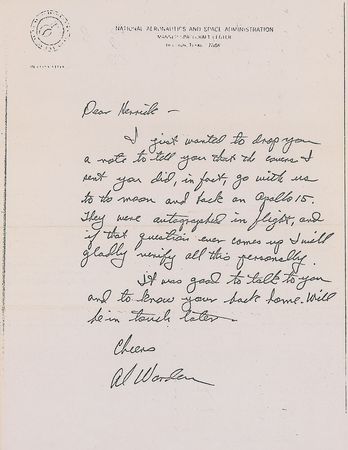 NATIONAL AERONAUTICS AND SPACE ADMINISTRATION
MANNED SPACECRAFT CENTER
HOUSTON, TEXAS 77058
Dear Herrick –
I just wanted to drop you
a note to tell you that the covers I
sent you did, in fact, go with us
to the moon and back on Apollo 15.
They were autographed in flight, and
if that question ever comes up I will
gladly verify all this personally.
It was good to talk to you
and to know your back home. Will
be in touch later.
Cheers
Al Worden